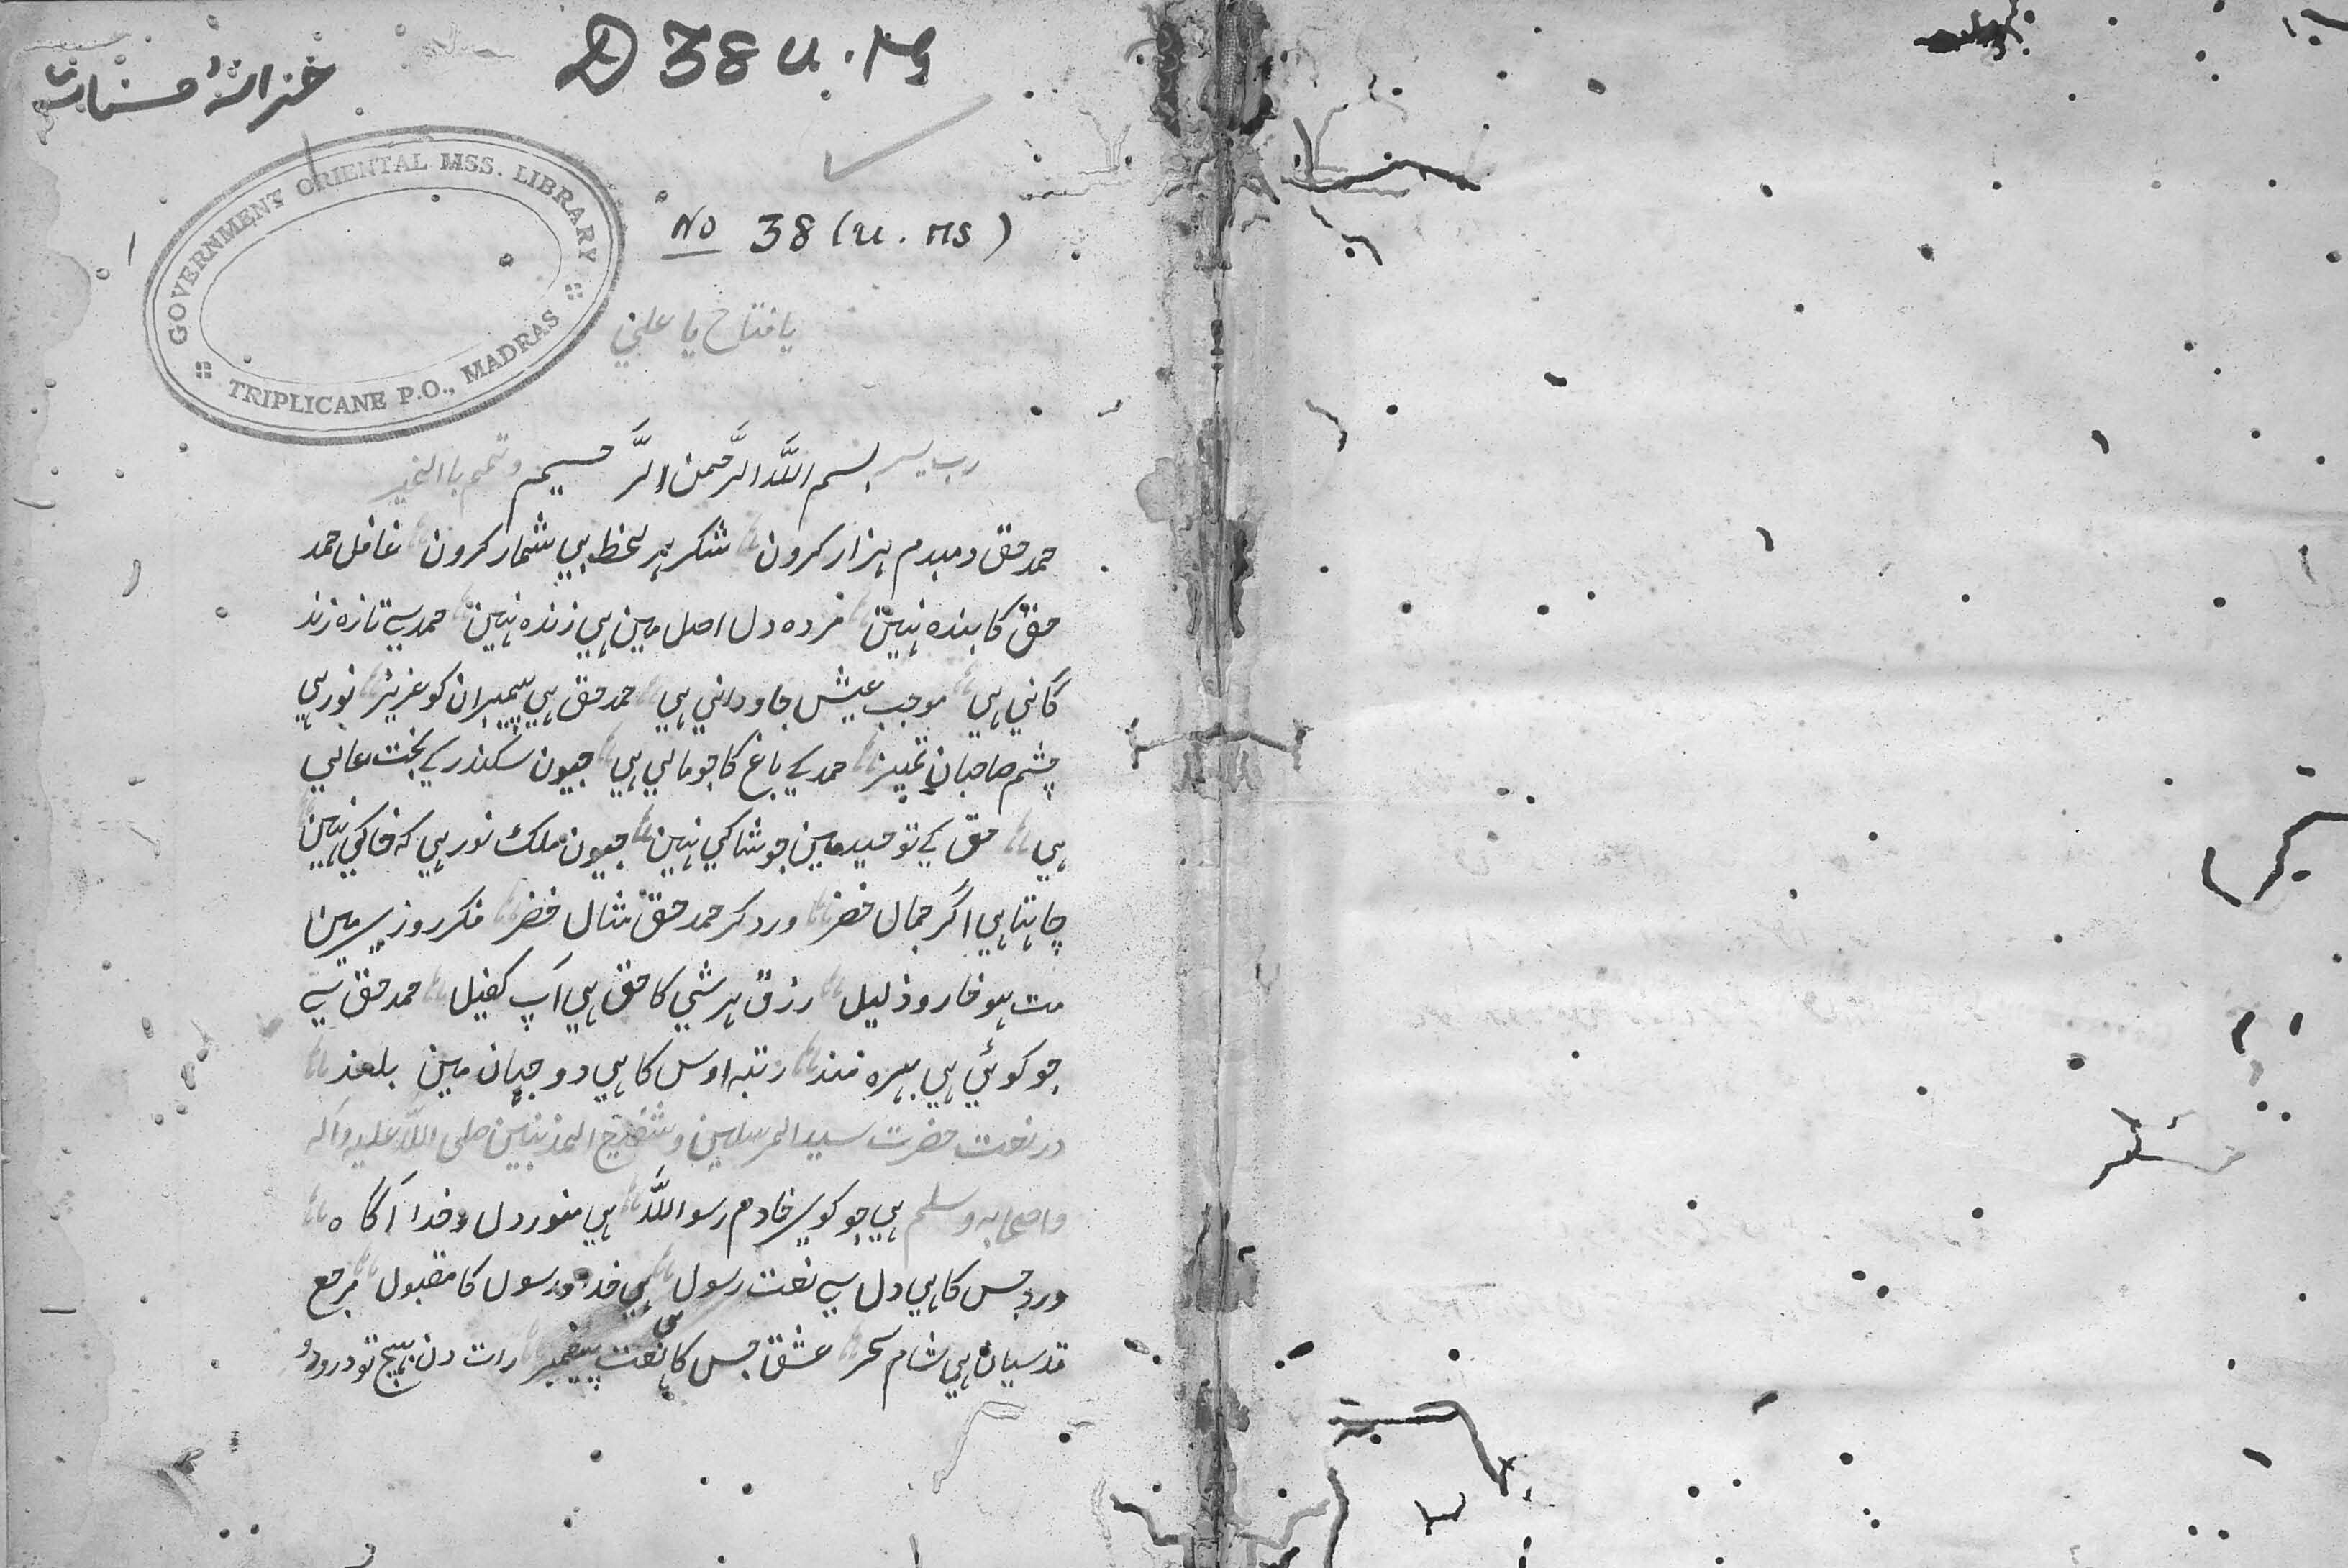 D 38 U. Ms
خزانۂ حسنات
GOVERNMENT ORIENTAL MSS. LIBRARY
TRIPLICANE P.O., MADRAS
No 38 (U. MS)
یا فتاح یا علی
رب یسر بسم اللہ الرحمن الرحیم وتمم باالخیر
حمد حق دمبدم ہزار کرون شکر ہر لحظ بی شمار کرون غافل حمد
حق کا بندہ نہین مردہ دل اصل مین ہی زندہ نہین حمد سے تازہ زند
گانی ہی موجب عیش جاودانی ہی حمد حق ہی پیمبران کو عزیز نور ہی
چشم صاحبان تمیز حمد کے باغ کا جو مالی ہی جیون سکندر کے بخت عالی
ہی حق کے توحید مین جو شاکی نہین جیون ملک نور ہی کہ خاکی نہین
چاہتا ہی اگر جمال خضر ورد کر حمد حق مثال خضر فکر روزی مین
مت ہو خار و ذلیل رزق ہر شی کا حق ہی آپ کفیل حمد حق سے
جو کوئی ہی بہرہ مند رتبہ اوس کا ہی دو جہان مین بلند
در نعت حضرت سید المرسلین و شفیع المذنبین صلی اللہ علیہ وآلہ
واصحابہ وسلم ہی جو کوی خادم رسو اللہ ہی منور دل و خدا آگاہ
ورد جس کا ہی دل سے نعت رسول ہی خدا و رسول کا مقبول مرجع
قدسیان ہی شام سحر عشق جس کا ہی نعت پیغمبر رات دن بہیج تو درود و